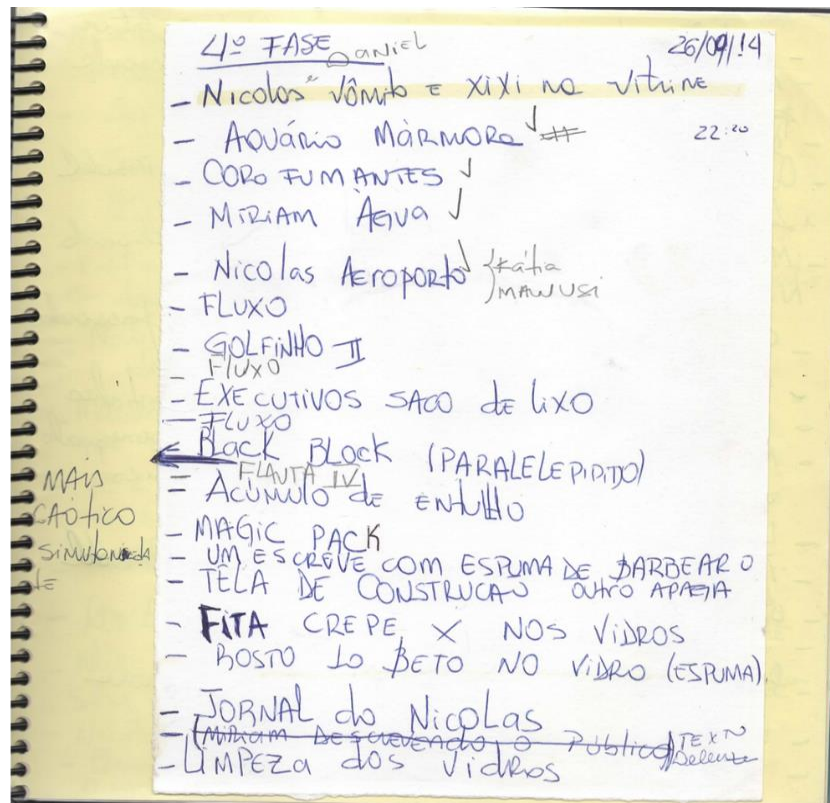 4º FASE DANIEL 26/09/14
- Nicolas" Vômito E XiXi na Vitrine
- AQUÁRIO MÁRMORE 22:20
- CORO FUMANTES
- MIRIAM ÁGUA
- Nicolas AEROPORTO { Kátia
MAWUSI
- FLUXO
- GOLFINHO II
- FluxO
- EXECUTIVOS SACO dE LiXO
- FLUXO
- BlacK BLocK (PARALELEPIPIDO)
- FLAUTA IV
- ACÚMULO dE ENtulHO
MAIS
CAÓTICO
- MAGIC PACK
- UM ESCREVE COM ESPUMA DE BARBEAR O
- TELA DE CONSTRUCAO OUTRO APAGA
- FITA CREPE X NOS VIDROS
- ROSTO DO BETO NO VIDRO (ESPUMA)
- JORNAL do NicoLas
- (MIRIAM DESCREVENDO O Público) TEXTO
- LIMPEZA dOS VidROS